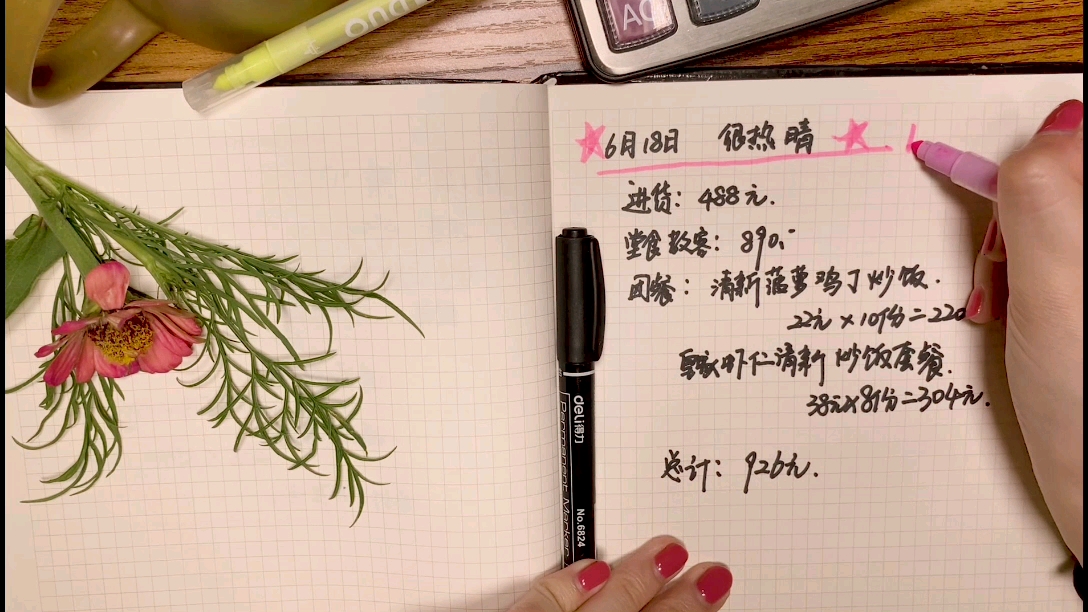 6月18日 很热 晴
进货：488元.
堂食散客：890.-
团餐：清新菠萝鸡丁炒饭.
22元×10份=220
虾仁清新炒饭套餐.
38元×8份=304元.
总计：926元.
deli得力
Permanent Marker
No.6824